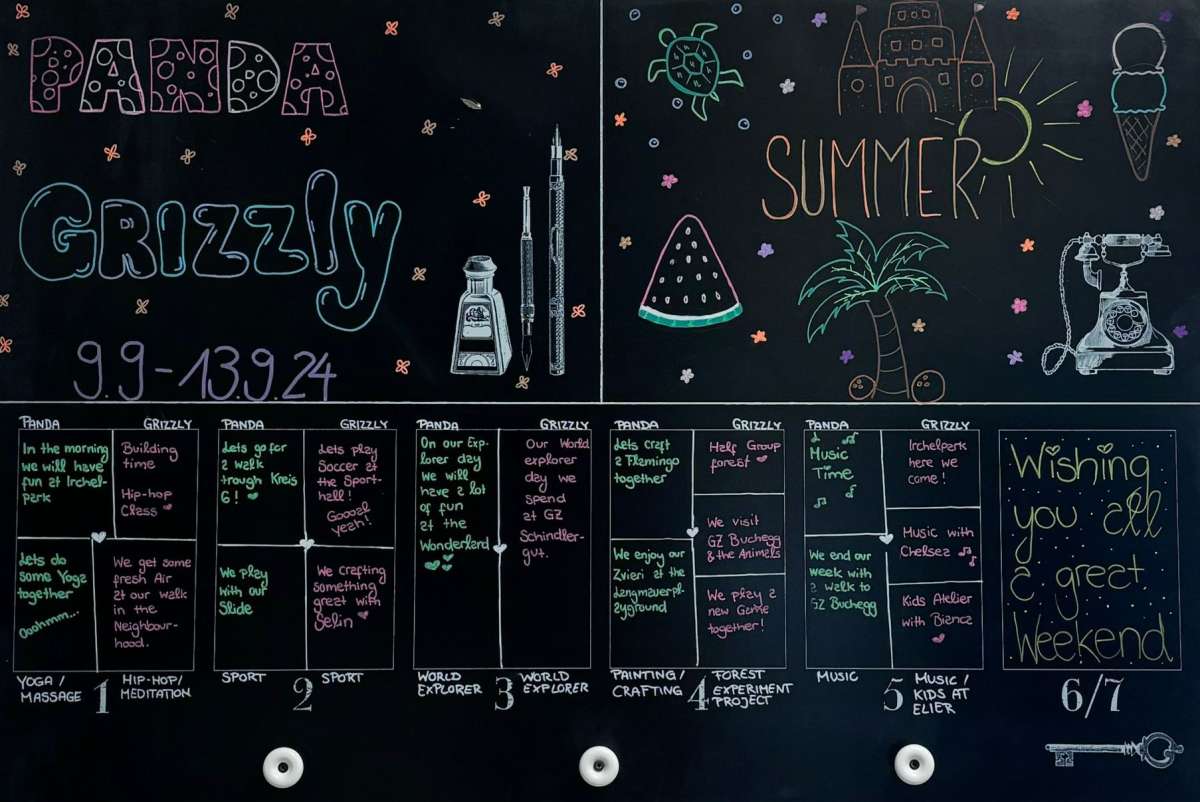 PANDA
GRIZZLY
9.9-13.9.24
SUMMER
PANDA
GRIZZLY
In the morning
we will have
fun at Irchel-
park
Building
time
Hip-hop
Class
Lets do
some Yoga
together
Ooohmm...
We get some
fresh Air
at our walk
in the
Neighbour-
hood.
YOGA /
MASSAGE
1
HIP-HOP/
MEDITATION
PANDA
GRIZZLY
Lets go for
a walk
trough Kreis
6!
Lets play
Soccer at
the Sport-
hall!
Goooal
yeah!
We play
with our
Slide
We crafting
something
great with
Selin
SPORT
2
SPORT
PANDA
GRIZZLY
On our Exp-
lorer day
we will
have a lot
of fun
at the
Wonderland
Our World
explorer
day we
spend
at GZ
Schindler-
gut.
WORLD
EXPLORER
3
WORLD
EXPLORER
PANDA
GRIZZLY
Lets craft
a Flamingo
together
Half Group
forest
We visit
GZ Buchegg
& the Animals
We enjoy our
Zvieri at the
Langmauerpl-
ayground
We play a
new Game
together!
PAINTING /
CRAFTING
4
FOREST
EXPERIMENT
PROJECT
PANDA
GRIZZLY
Music
Time
Irchelpark
here we
come!
Music with
Chelsea
We end our
week with
a walk to
GZ Buchegg
Kids Atelier
with Bianca
MUSIC
5
MUSIC /
KIDS AT
ELIER
Wishing
you all
a great
Weekend
6/7